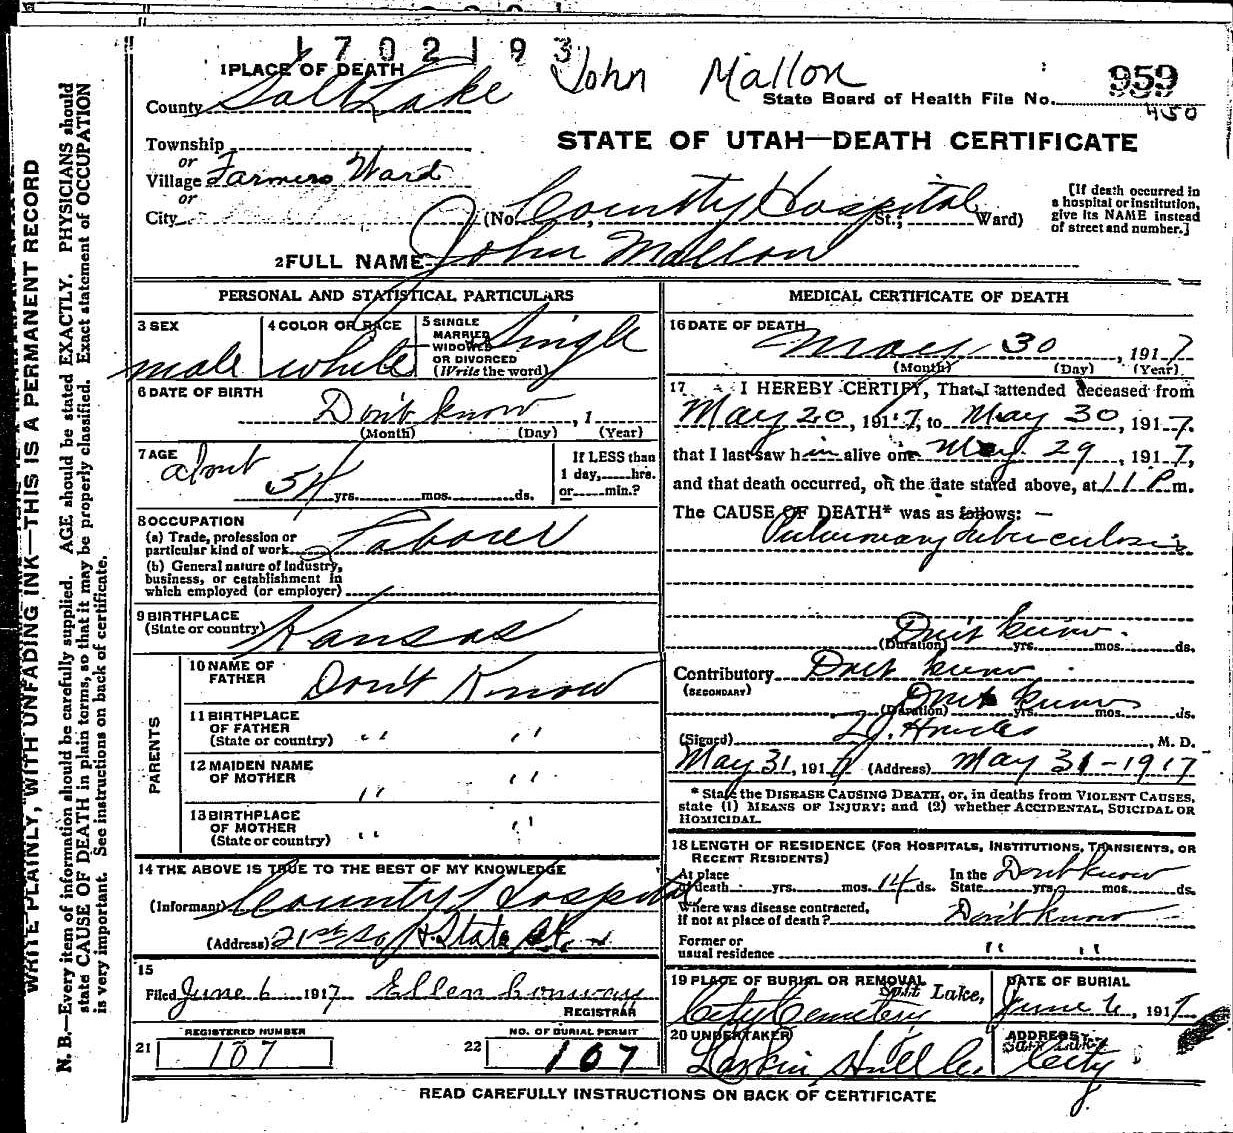 1702193
1 PLACE OF DEATH John Mallon 959
County Salt Lake State Board of Health File No. 450
Township STATE OF UTAH—DEATH CERTIFICATE
or
Village Farmers Ward
or
City (No. County Hospital St.; Ward) [If death occurred in a hospital or institution, give its NAME instead of street and number.]
2 FULL NAME John Mallon
PERSONAL AND STATISTICAL PARTICULARS
3 SEX male
4 COLOR OR RACE white
5 SINGLE MARRIED WIDOWED OR DIVORCED (Write the word) Single
6 DATE OF BIRTH Don't know, 1
(Month) (Day) (Year)
7 AGE about 54 yrs. mos. ds.
If LESS than 1 day, hrs. or min.?
8 OCCUPATION
(a) Trade, profession or particular kind of work Laborer
(b) General nature of Industry, business, or establishment in which employed (or employer)
9 BIRTHPLACE (State or country) Kansas
PARENTS
10 NAME OF FATHER Don't Know
11 BIRTHPLACE OF FATHER (State or country) " "
12 MAIDEN NAME OF MOTHER " "
13 BIRTHPLACE OF MOTHER (State or country) " "
14 THE ABOVE IS TRUE TO THE BEST OF MY KNOWLEDGE
(Informant) County Hospital
(Address) 21st So State St.
15
Filed June 6 1917 Ellen Conway
REGISTRAR
REGISTERED NUMBER
21 107
NO. OF BURIAL PERMIT
22 107
MEDICAL CERTIFICATE OF DEATH
16 DATE OF DEATH May 30, 1917
(Month) (Day) (Year)
17 I HEREBY CERTIFY, That I attended deceased from
May 20, 1917, to May 30, 1917.
that I last saw him alive on May 29, 1917,
and that death occurred, on the date stated above, at 11 P m.
The CAUSE OF DEATH* was as follows: —
Pulmonary tuberculosis
Don't know.
(Duration) yrs. mos. ds.
Contributory (SECONDARY) Don't know
Don't know
(Duration) yrs. mos. ds.
(Signed) , M. D.
May 31, 1917 (Address) May 31-1917
* State the DISEASE CAUSING DEATH, or, in deaths from VIOLENT CAUSES,
state (1) MEANS OF INJURY; and (2) whether ACCIDENTAL, SUICIDAL OR
HOMICIDAL.
18 LENGTH OF RESIDENCE (FOR HOSPITALS, INSTITUTIONS, TRANSIENTS, OR
RECENT RESIDENTS)
At place of death yrs. mos. 14 ds. In the State yrs. mos. ds. Don't know
Where was disease contracted, if not at place of death? Don't know
Former or usual residence " "
19 PLACE OF BURIAL OR REMOVAL Salt Lake, City Cemetery
DATE OF BURIAL June 6, 1917
20 UNDERTAKER Larkin Hull Co.
ADDRESS Salt Lake City
READ CAREFULLY INSTRUCTIONS ON BACK OF CERTIFICATE
WRITE PLAINLY, WITH UNFADING INK—THIS IS A PERMANENT RECORD
N. B.—Every item of information should be carefully supplied. AGE should be stated EXACTLY. PHYSICIANS should
state CAUSE OF DEATH in plain terms, so that it may be properly classified. Exact statement of OCCUPATION
is very important. See instructions on back of certificate.